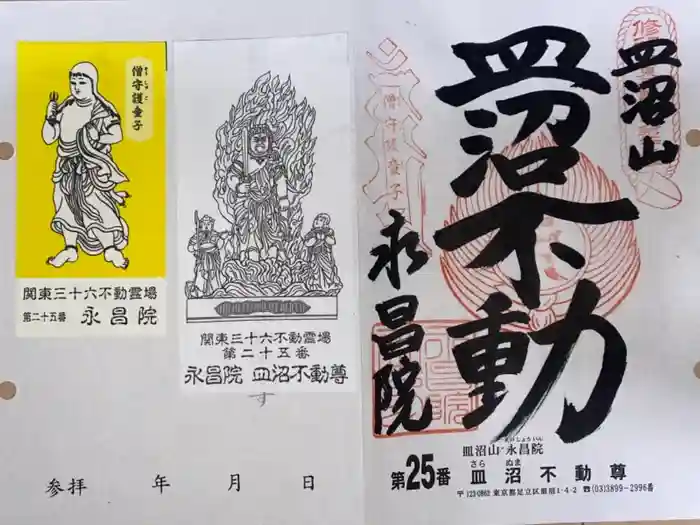 僧守護童子
関東三十六不動霊場
第二十五番 永昌院
関東三十六不動霊場
第二十五番
永昌院 皿沼不動尊
す
参拝 年 月 日
皿沼山
皿沼不動
永昌院
僧守護童子
えいしょういん
皿沼山 永昌院
さら ぬま
第25番 皿沼不動尊
〒123-0862 東京都足立区皿沼1-4-2 ☎(03)3899-2996番